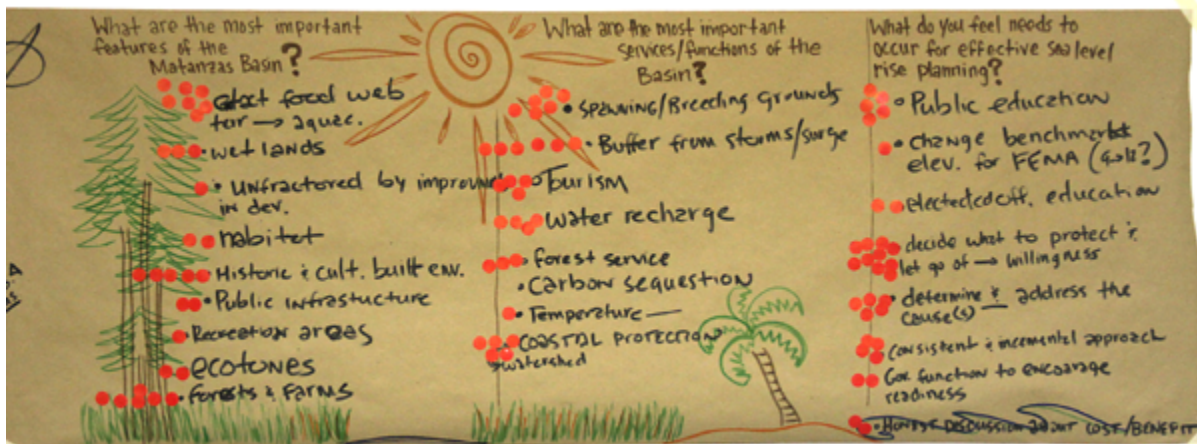 What are the most important
features of the
Matanzas Basin?
food web
terr → aquac.
• wetlands
• unfractored by improvmts
in dev.
habitat
• Historic & cult. built env.
• Public infrastucture
• Recreation areas
• ecotones
• Forests & Farms
What are the most important
services/functions of the
Basin?
• Spawning/Breeding Grounds
• Buffer from storms/surge
• Tourism
• water recharge
• forest service
• carbon sequestion
• Temperature
• COASTAL PROTECTION
watershed
What do you feel needs to
occur for effective sea level
rise planning?
• Public education
• change benchmark
elev. for FEMA
• elected off. education
• decide what to protect &
let go of → willingness
• determine & address the
cause(s)
• consistent & incremental approach
Gov function to encourage
readiness
• HONEST DISCUSSION ABOUT COST/BENEFIT